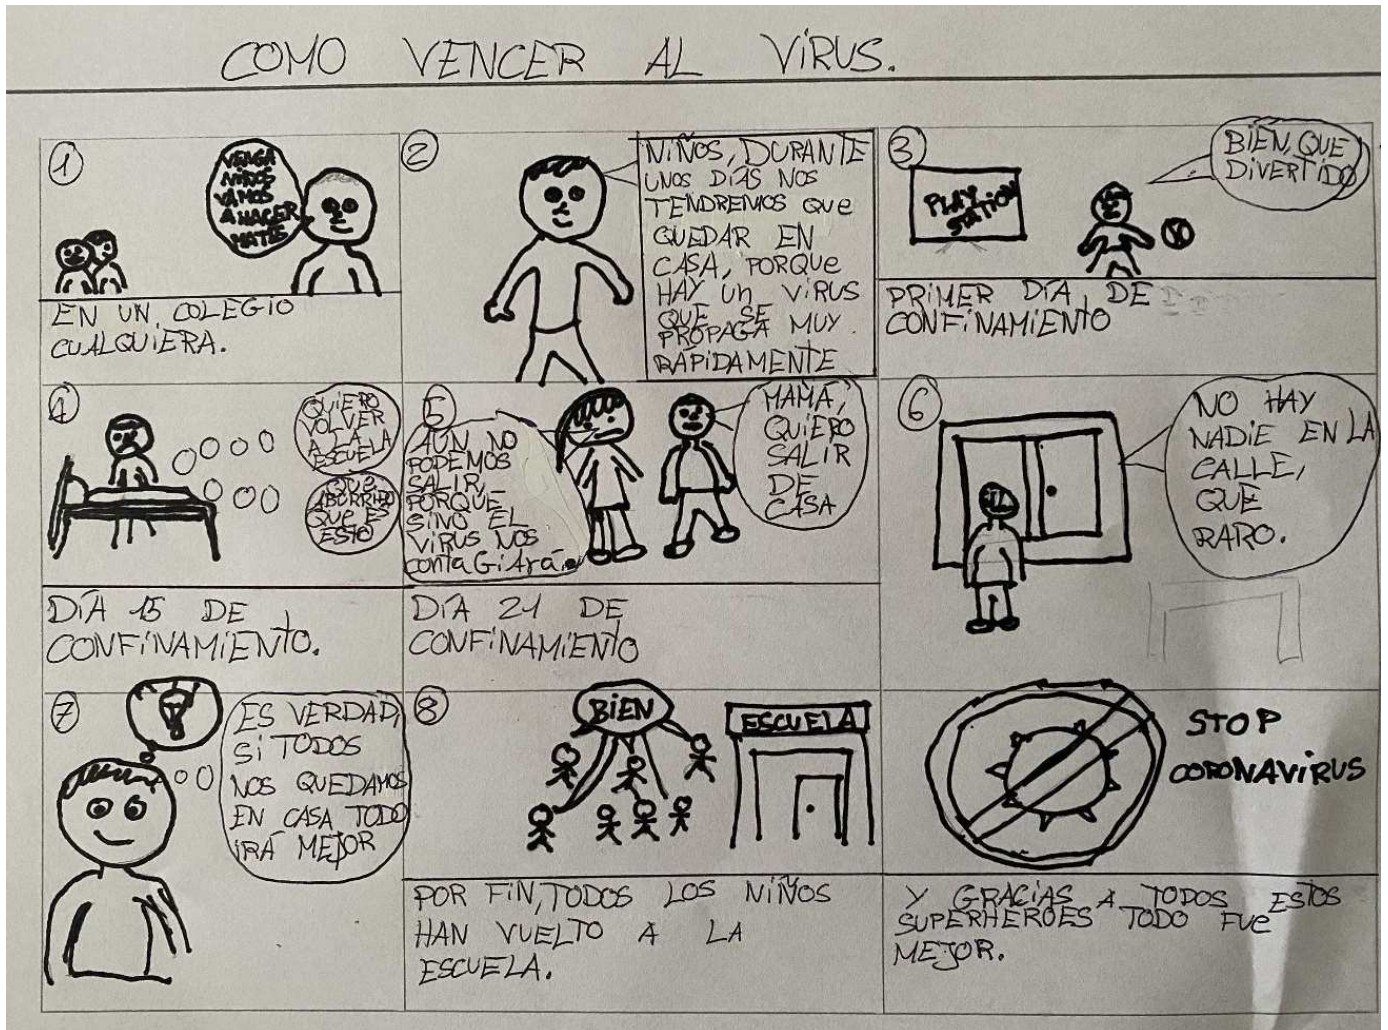 COMO VENCER AL VIRUS.
1
VENGA
NIÑOS
VAMOS
A HACER
MATES
EN UN COLEGIO
CUALQUIERA.
2
NIÑOS, DURANTE
UNOS DÍAS NOS
TENDREMOS QUE
QUEDAR EN
CASA, PORQUE
HAY UN VIRUS
QUE SE
PROPAGA MUY
RÁPIDAMENTE
3
PLAY
STATION
BIEN, QUE
DIVERTIDO
PRIMER DÍA DE
CONFINAMIENTO
4
QUIERO
VOLVER
A LA
ESCUELA
QUE
ABURRIDO
QUE ES
ESTO
DÍA 15 DE
CONFINAMIENTO.
5
AÚN NO
PODEMOS
SALIR,
PORQUE
SINO EL
VIRUS NOS
contaGiArá.
MAMÁ,
QUIERO
SALIR
DE
CASA
DÍA 21 DE
CONFINAMIENTO
6
NO HAY
NADIE EN LA
CALLE,
QUE
RARO.
7
ES VERDAD,
SI TODOS
NOS QUEDAMOS
EN CASA TODO
IRÁ MEJOR
8
BIEN
ESCUELA
POR FIN, TODOS LOS NIÑOS
HAN VUELTO A LA
ESCUELA.
STOP
CORONAVIRUS
Y GRACIAS A TODOS ESTOS
SUPERHEROES TODO FUE
MEJOR.